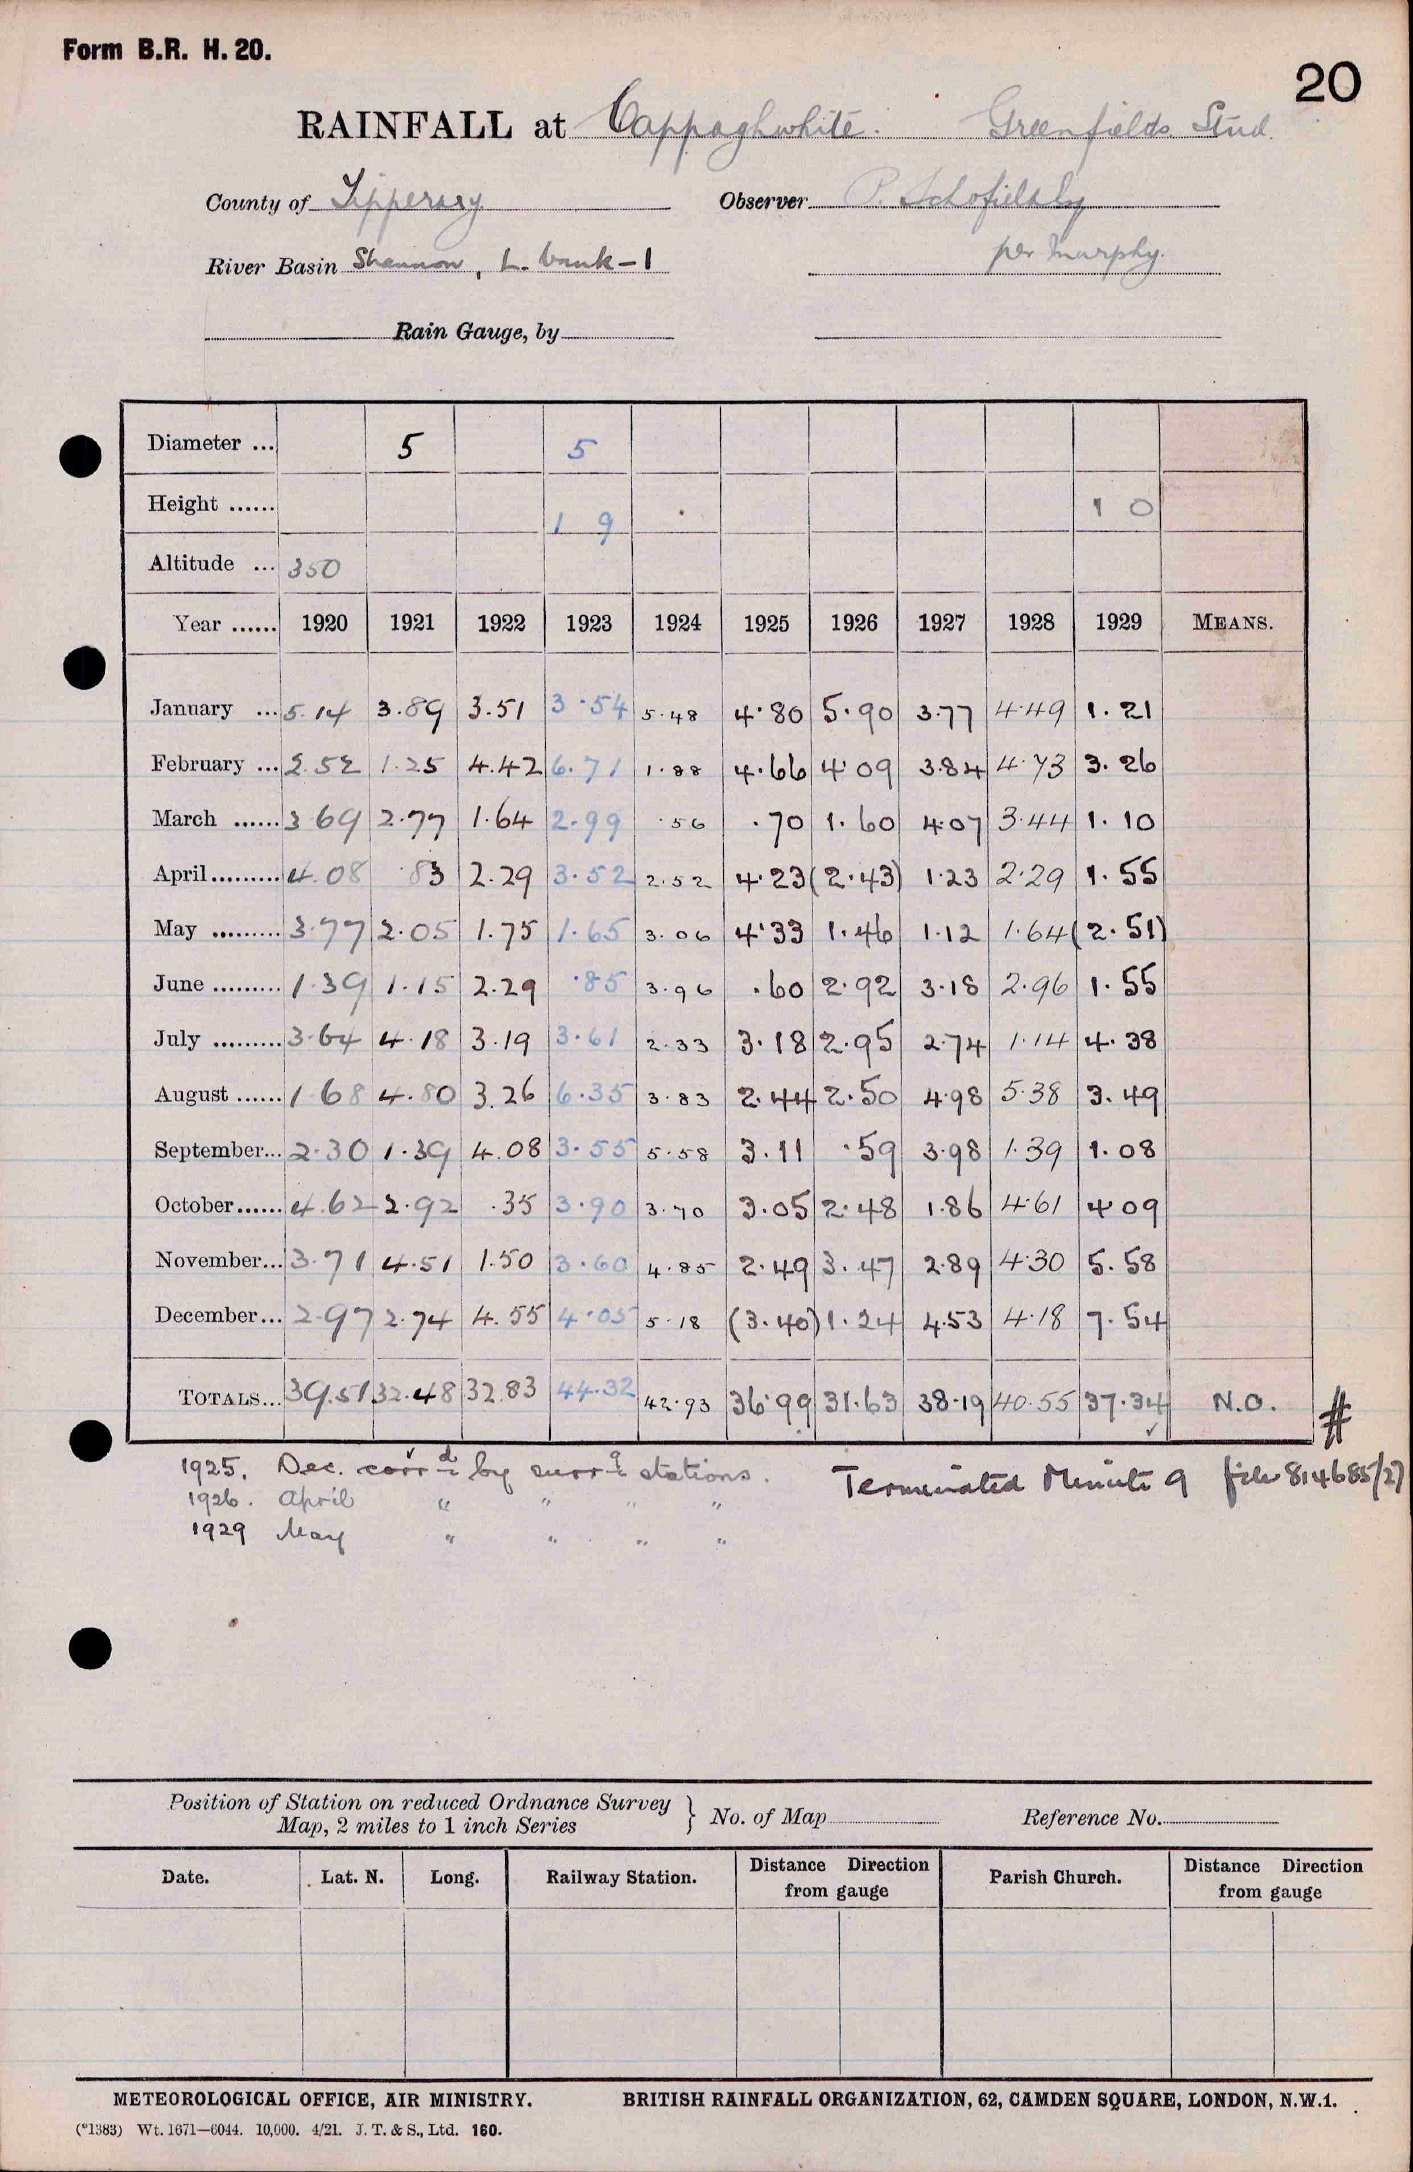 Form B.R. H. 20.
20
RAINFALL at Cappaghwhite. Greenfields Stud.
County of Tipperary Observer P.
River Basin Shannon, L. bank-1 per Murphy.
Rain Gauge, by
Diameter ... 5 5
Height ...... 1 9 1 0
Altitude ... 350
Year ...... 1920 1921 1922 1923 1924 1925 1926 1927 1928 1929 MEANS.
January ... 5.14 3.89 3.51 3.54 5.48 4.80 5.90 3.77 4.49 1.21
February ... 2.52 1.25 4.42 6.71 1.88 4.66 4.09 3.84 4.73 3.26
March ...... 3.69 2.77 1.64 2.99 .56 .70 1.60 4.07 3.44 1.10
April......... 4.08 .83 2.29 3.52 2.52 4.23 (2.43) 1.23 2.29 1.55
May ......... 3.77 2.05 1.75 1.65 3.06 4.33 1.46 1.12 1.64 (2.51)
June ......... 1.39 1.15 2.29 .85 3.96 .60 2.92 3.18 2.96 1.55
July ......... 3.64 4.18 3.19 3.61 2.33 3.18 2.95 2.74 1.14 4.38
August ...... 1.68 4.80 3.26 6.35 3.83 2.44 2.50 4.98 5.38 3.49
September... 2.30 1.39 4.08 3.55 5.58 3.11 .59 3.98 1.39 1.08
October...... 4.62 2.92 .35 3.90 3.70 3.05 2.48 1.86 4.61 4.09
November... 3.71 4.51 1.50 3.60 4.85 2.49 3.47 2.89 4.30 5.58
December... 2.97 2.74 4.55 4.05 5.18 (3.40) 1.24 4.53 4.18 7.54
TOTALS... 39.51 32.48 32.83 44.32 42.93 36.99 31.63 38.19 40.55 37.34 N.O. #
1925. Dec. corrd by surrg stations. Terminated Minute 9 file 814685/27
1926. April " " " "
1929 May " " " "
Position of Station on reduced Ordnance Survey
Map, 2 miles to 1 inch Series } No. of Map Reference No.
Date. Lat. N. Long. Railway Station. Distance Direction from gauge Parish Church. Distance Direction from gauge
METEOROLOGICAL OFFICE, AIR MINISTRY. BRITISH RAINFALL ORGANIZATION, 62, CAMDEN SQUARE, LONDON, N.W.1.
(*1383) Wt. 1671—6044. 10,000. 4/21. J. T. & S., Ltd. 160.